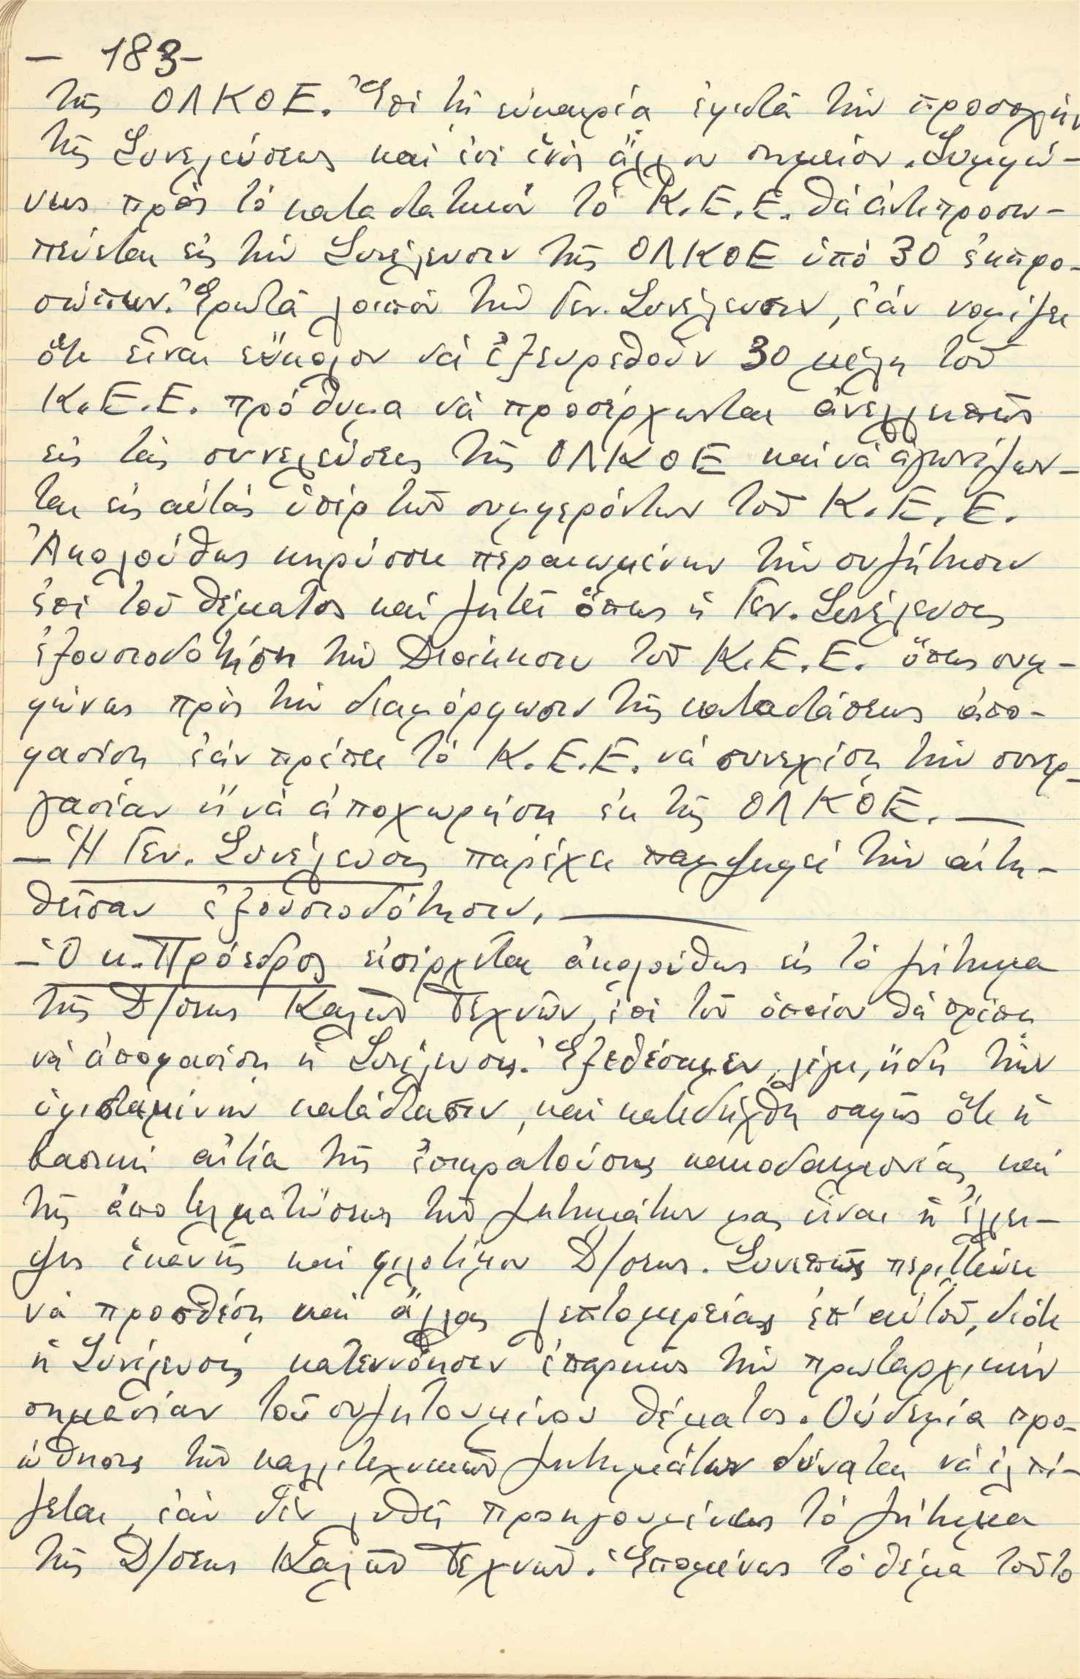 — 183 —
τῆς ΟΛΚΟΕ. Ἐπὶ τῇ εὐκαιρίᾳ ἐφιστᾷ τὴν προσοχὴν
τῆς Συνελεύσεως καὶ ἐπὶ ἑνὸς ἄλλου σημείου. Συμφώ-
νως πρὸς τὸ καταστατικὸν τὸ Κ.Ε.Ε. θὰ ἀντιπροσω-
πεύεται εἰς τὴν Συνέλευσιν τῆς ΟΛΚΟΕ ὑπὸ 30 ἐκπρο-
σώπων. Ἐρωτᾷ λοιπὸν τὴν Γεν. Συνέλευσιν, ἐὰν νομίζει
ὅτι εἶναι εὔκολον νὰ ἐξευρεθοῦν 30 μέλη τοῦ
Κ.Ε.Ε. πρόθυμα νὰ προσέρχωνται ἀνελλιπῶς
εἰς τὰς συνελεύσεις τῆς ΟΛΚΟΕ καὶ νὰ ἀγωνίζων-
ται εἰς αὐτὰς ὑπὲρ τῶν συμφερόντων τοῦ Κ.Ε.Ε.
Ἀκολούθως κηρύσσει περαιωμένην τὴν συζήτησιν
ἐπὶ τοῦ θέματος καὶ ζητεῖ ὅπως ἡ Γεν. Συνέλευσις
ἐξουσιοδοτήσῃ τὴν Διοίκησιν τοῦ Κ.Ε.Ε. ὅπως συμ-
φώνως πρὸς τὴν διαμόρφωσιν τῆς καταστάσεως ἀπο-
φασίσῃ ἐὰν πρέπει τὸ Κ.Ε.Ε. νὰ συνεχίσῃ τὴν συνερ-
γασίαν ἢ νὰ ἀποχωρήσῃ ἐκ τῆς ΟΛΚΟΕ. —
— Ἡ Γεν. Συνέλευσις παρέχει παμψηφεὶ τὴν αἰτη-
θεῖσαν ἐξουσιοδότησιν. —
— Ὁ κ. Πρόεδρος εἰσέρχεται ἀκολούθως εἰς τὸ ζήτημα
τῆς Δ/σεως Καλῶν Τεχνῶν, ἐπὶ τοῦ ὁποίου θὰ πρέπει
νὰ ἀποφασίσῃ ἡ Συνέλευσις. Ἐξεθέσαμεν, λέγει, ἤδη τὴν
ὑφισταμένην κατάστασιν, καὶ κατεδείχθη σαφῶς ὅτι ἡ
βασικὴ αἰτία τῆς ἐπικρατούσης κακοδαιμονίας καὶ
τῆς ἀποτελματώσεως τῶν ζητημάτων μας εἶναι ἡ ἔλλει-
ψις ἱκανῆς καὶ φιλοτίμου Δ/σεως. Συνεπῶς περιττεύει
νὰ προσθέσῃ καὶ ἄλλας λεπτομερείας ἐπ' αὐτοῦ, διότι
ἡ Συνέλευσις κατενόησεν ἐπαρκῶς τὴν πρωταρχικὴν
σημασίαν τοῦ συζητουμένου θέματος. Οὐδεμία προ-
ώθησις τῶν καλλιτεχνικῶν ζητημάτων δύναται νὰ ἐλπί-
ζεται, ἐὰν δὲν λυθῇ προηγουμένως τὸ ζήτημα
τῆς Δ/σεως Καλῶν Τεχνῶν. Ἑπομένως τὸ θέμα τοῦτο